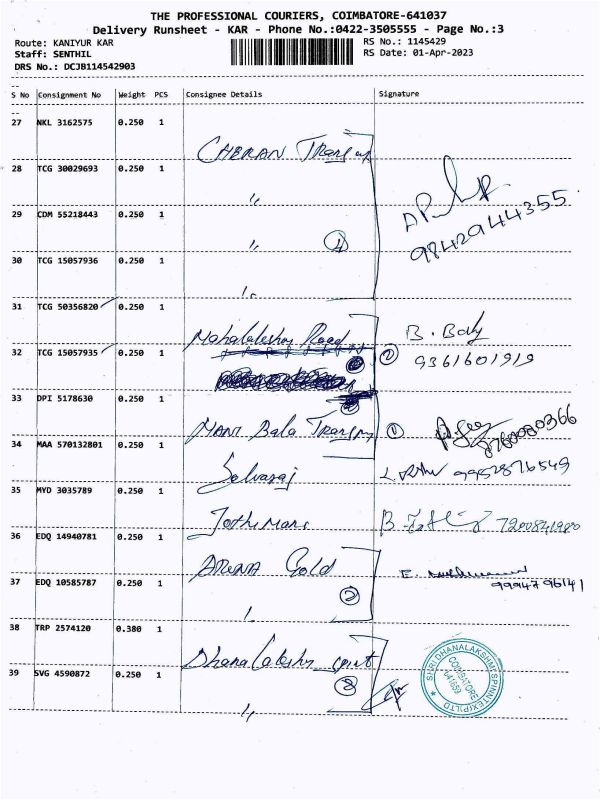 THE PROFESSIONAL COURIERS, COIMBATORE-641037
Delivery Runsheet - KAR - Phone No.:0422-3505555 - Page No.:3
Route: KANIYUR KAR
RS No.: 1145429
Staff: SENTHIL
RS Date: 01-Apr-2023
DRS No.: DCJB114542903
--
S No Consignment No Weight PCS Consignee Details Signature
--
27 NKL 3162575 0.250 1
CHERAN
28 TCG 30029693 0.250 1
〃
29 CDM 55218443 0.250 1
〃 4
9842944355
30 TCG 15057936 0.250 1
〃
31 TCG 50356820 0.250 1
Mahalakshmi Road B. Body
32 TCG 15057935 0.250 1
① 9361601919
33 DPI 5178630 0.250 1
MANI Bala ①
8760080366
34 MAA 570132801 0.250 1
Selvaraj 9952876549
35 MYD 3035789 0.250 1
Jothimani 7200841980
36 EDQ 14940781 0.250 1
ARUNA Gold
37 EDQ 10585787 0.250 1
② 9994796141
〃
38 TRP 2574120 0.380 1
Dhanalakshmi Spint
39 SVG 4590872 0.250 1
〃
SHRI DHANALAKSHMI SPINNTEX (P) LTD
COIMBATORE
641659